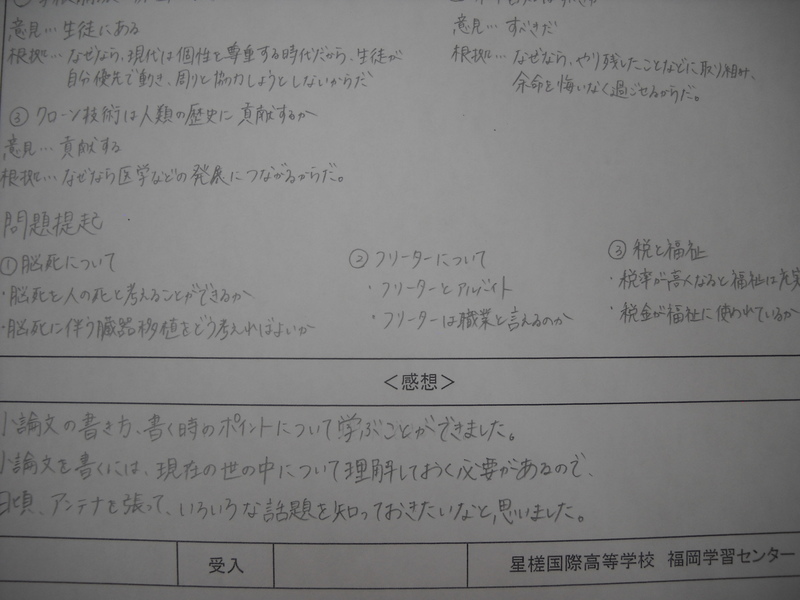 意見… 生徒にある
根拠… なぜなら、現代は個性を尊重する時代だから、生徒が
自分優先で動き、周りと協力しようとしないからだ
意見… すべきだ
根拠… なぜなら、やり残したことなどに取り組み、
余命を悔いなく過ごせるからだ。
③ クローン技術は人類の歴史に貢献するか
意見… 貢献する
根拠… なぜなら医学などの発展につながるからだ。
問題提起
① 脳死について
・脳死を人の死と考えることができるか
・脳死に伴う臓器移植をどう考えればよいか
② フリーターについて
・フリーターとアルバイト
・フリーターは職業と言えるのか
③ 税と福祉
・税率が高くなると福祉は充実
・税金が福祉に使われているか
＜感想＞
小論文の書き方、書く時のポイントについて学ぶことができました。
小論文を書くには、現在の世の中について理解しておく必要があるので、
日頃、アンテナを張って、いろいろな話題を知っておきたいなと思いました。
受入
星槎国際高等学校 福岡学習センター